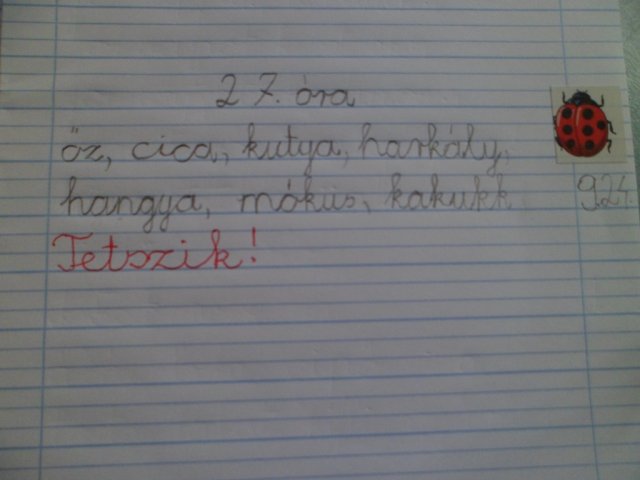 27. óra
őz, cica, kutya, harkály,
hangya, mókus, kakukk
9.24.
Tetszik!